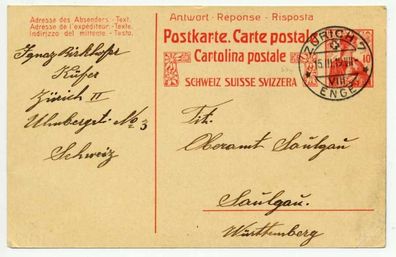 Adresse des Absenders - Text.
Adresse de l'expéditeur - Texte.
Indirizzo del mittente - Testo.
Ignaz
Küfer
Zürich II
No 3
Schweiz
Antwort - Reponse - Risposta
Postkarte. Carte postale
Cartolina postale
SCHWEIZ SUISSE SVIZZERA
10
ZÜRICH 7
VIII
ENGE
Tit.
Oberamt Saulgau
Saulgau.
Württemberg